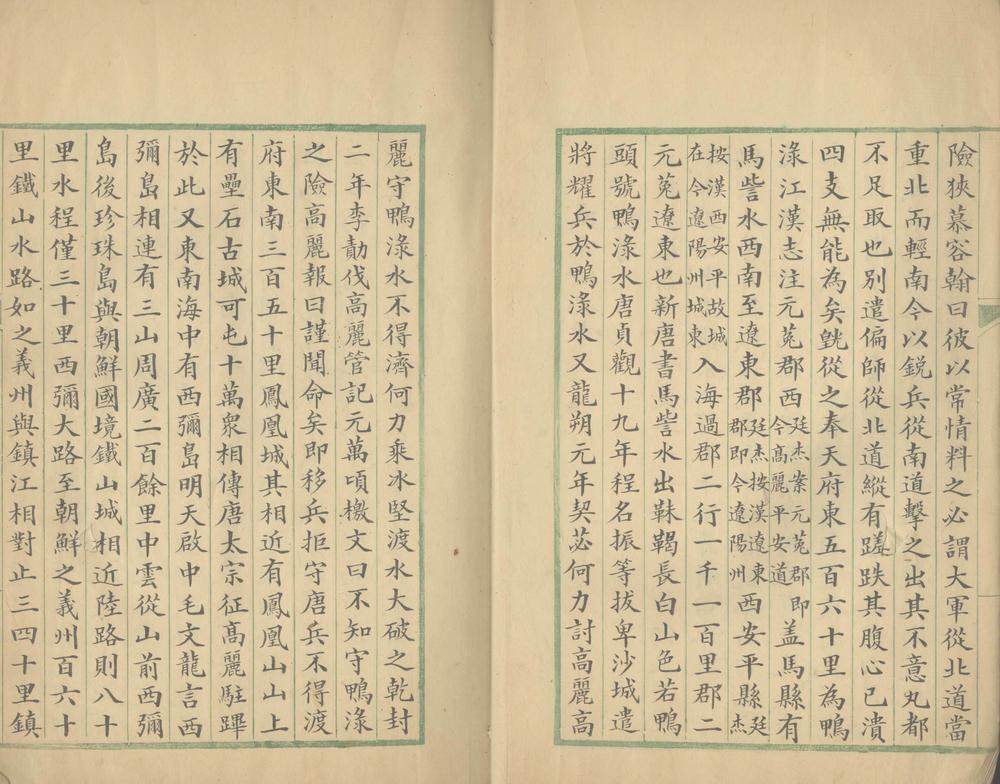 險狹慕容翰曰彼以常情料之必謂大軍從北道當
重北而輕南今以銳兵從南道擊之出其不意丸都
不足取也別遣偏師從北道縱有蹉跌其腹心已潰
四支無能為矣皝從之奉天府東五百六十里為鴨
淥江漢志注元菟郡西廷杰案元菟郡即今高麗平安道蓋馬縣有
馬訾水西南至遼東郡廷杰按漢遼東郡即今遼陽州西安平縣廷杰
按漢西安平故城在今遼陽州城東入海過郡二行一千一百里郡二
元菟遼東也新唐書馬訾水出靺鞨長白山色若鴨
頭號鴨淥水唐貞觀十九年程名振等拔卑沙城遣
將耀兵於鴨淥水又龍朔元年契苾何力討高麗高
麗守鴨淥水不得濟何力乘冰堅渡水大破之乾封
二年李勣伐高麗管記元萬頃檄文曰不知守鴨淥
之險高麗報曰謹聞命矣即移兵拒守唐兵不得渡
府東南三百五十里鳳凰城其相近有鳳凰山山上
有壘石古城可屯十萬衆相傳唐太宗征高麗駐蹕
於此又東南海中有西彌島明天啟中毛文龍言西
彌島相連有三山周廣二百餘里中雲從山前西彌
島後珍珠島與朝鮮國境鐵山城相近陸路則八十
里水程僅三十里西彌大路至朝鮮之義州百六十
里鐵山水路如之義州與鎮江相對止三四十里鎮